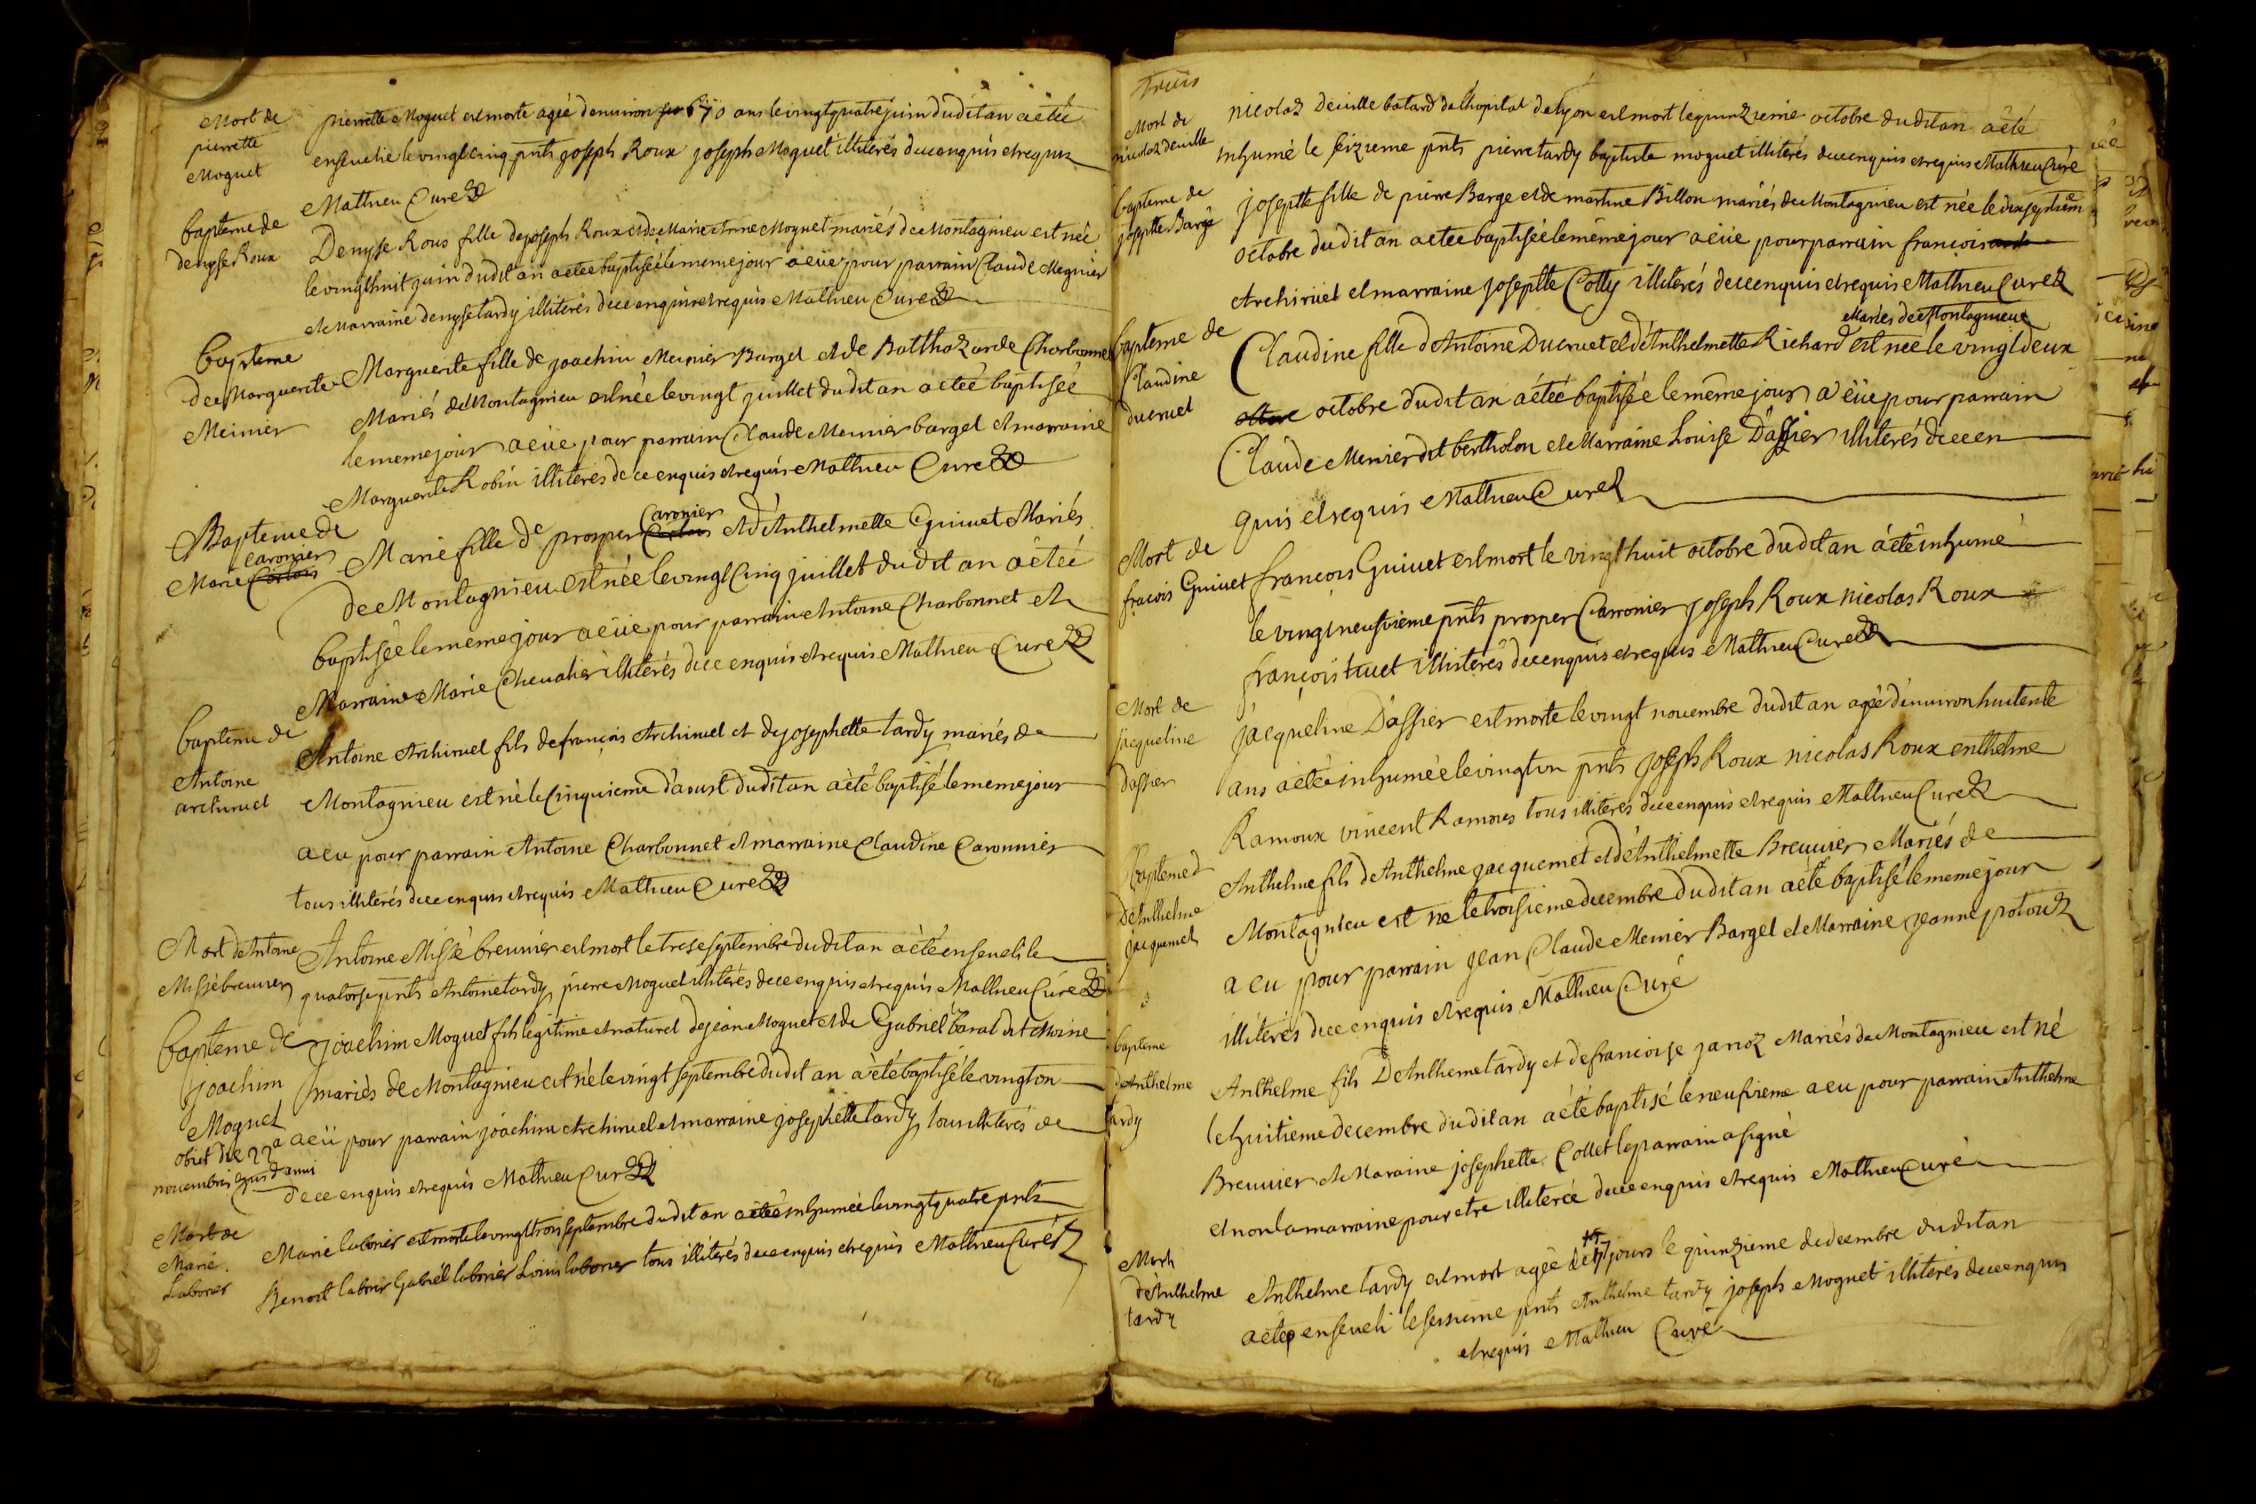 Mort de
pierrette
Moguet
pierrette Moguet est morte agée denviron 70 ans le vingtquatre juin dudit an aêtée
ensevelie le vingtcinq pnts joseph Roux joseph Moguet illitérés de ce enquis et requis
Mathieu Curé
bapteme de
denyse Roux
Denyse Roux fille de joseph Roux et de Marie Anne Moguet mariés de Montagnieu est née
le vingthuit juin dudit an aetée baptisée le meme jour a eüe pour parrain Claude Megnier
et Marraine denyse tardy illiterés de ce enquis et requis Mathieu Curé
Bapteme
de Marguerite
Meinier
Marguerite fille de joachin Meinier Barget et de Balthazarde Charbonnet
Mariés de Montagnieu est née le vingt juillet dudit an aetée baptisée
le meme jour a eüe pour parrain Claude Meunier barget et marraine
Marguerite Robin illiterés de ce enquis et requis Mathieu Curé
Bapteme de
caronier
Marie
Caronier
Marie fille de prosper et d'Anthelmette Guinet Mariés
de Montagnieu est née le vingt Cinq juillet dudit an aêtée
baptisée le meme jour a eüe pour parrain Antoine Charbonnet et
Marraine Marie Chevalier illiterés de ce enquis et requis Mathieu Curé
bapteme de
Antoine
archiruel
Antoine Archiruel fils de françois Archiruel et de josephette tardy mariés de
Montagnieu est né le Cinquieme d'aoust dudit an aêté baptisé le meme jour
a eu pour parrain Antoine Charbonnet et marraine Claudine Caronnier
tous illiterés de ce enquis et requis Mathieu Curé
Mort de Antoine
Missé breuvier
Antoine Missé breuvier est mort le trese septembre dudit an aêté enseveli le
quatorse pnts Antoine tardy pierre Moguet illiterés de ce enquis et requis Mathieu Curé
bapteme de
joachim
Moguet
obiit die 22a
novembris
joachim Moguet fils legitime et naturel de jean Moguet et de Gabriel baral dit Moine
mariés de Montagnieu est né le vingt septembre dudit an a êté baptisé le vingt un
a eü pour parrain joachim Archiruel et marraine josephette tardy tous illiterés de
de ce enquis et requis Mathieu Curé
Mort de
Marie
Laborier
Marie laborier est morte le vingt trois septembre dudit an aêtée inhumée le vingt quatre pnts
Benoit laborier Gabriel laborier Louis laborier tous illiterés de ce enquis et requis Mathieu Curé
Mort de
nicolas deville
nicolas Deville batard de l'hopital de lyon est mort le quinzieme octobre dudit an aêté
inhumé le seizieme pnts pierre tardy baptiste moguet illiterés de ce enquis et requis Mathieu Curé
bapteme de
josephte Barge
josephte fille de pierre Barge et de martine Billon mariés de Montagnieu est née le dixseptiem
octobre dudit an aetée baptisée le meme jour a eüe pour parrain françois
Archiruel et marraine josephte Cotty illiterés de ce enquis et requis Mathieu Curé
bapteme de
Claudine
ducruet
Mariés de Montagnieu
Claudine fille d'Antoine Ducruet et d'Anthelmette Richard est née le vingt deux
octobre dudit an aêtée baptisée le même jour a eüe pour parrain
Claude Menier dit bertholon et Marraine Louise Dassier illiterés de ce en
quis et requis Mathieu Curé
Mort de
fracois Guinet
françois Guinet est mort le vingt huit octobre dudit an aêté inhumé
le vingt neufvieme pnts prosper Caronier joseph Roux nicolas Roux
françois illiterés de ce enquis et requis Mathieu Curé
Mort de
jacqueline
dassier
jacqueline Dassier est morte le vingt novembre dudit an agée denviron huitente
ans aêtée inhumée le vingt un pnts joseph Roux nicolas Roux enthelme
Ramoux vincent Ramoux tous illiterés de ce enquis et requis Mathieu Curé
Bapteme d
D'Anthelme
jacquemet
Anthelme fils d'Anthelme jacquemet et d'Anthelmette Breuvier Mariés de
Montagnieu est né le troisieme decembre dudit an aêté baptisé le meme jour
a eu pour parrain jean Claude Menier Barget et Marraine jeanne
illiterés de ce enquis et requis Mathieu Curé
bapteme
d'Anthelme
tardy
Anthelme fils D'Anthelme tardy et de francoise janoz Mariés de Montagnieu est né
le huitieme decembre dudit an aêté baptisé le neufvieme a eu pour parrain Anthelme
Breuvier et Maraine josephette Collet le parrain a signé
et non la marraine pour etre illiterée de ce enquis et requis Mathieu Curé
Mort
d'Anthelme
tardy
Anthelme tardy est mort agée de 7 jours le quinzieme de decembre dudit an
aêté enseveli le sezieme pnts Anthelme tardy joseph Moguet illiterés de ce enquis
et requis Mathieu Curé